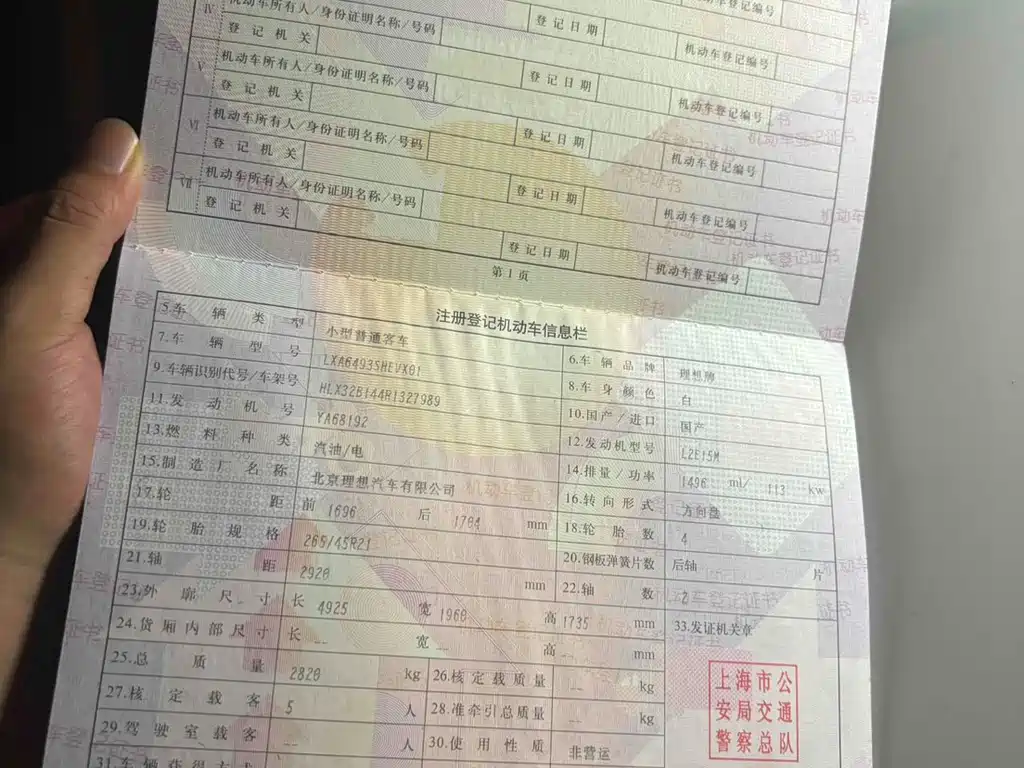 IV 机动车所有人/身份证明名称/号码
登记机关 登记日期 机动车登记编号
V 机动车所有人/身份证明名称/号码
登记机关 登记日期 机动车登记编号
VI 机动车所有人/身份证明名称/号码
登记机关 登记日期 机动车登记编号
VII 机动车所有人/身份证明名称/号码
登记机关 登记日期 机动车登记编号
第1页
注册登记机动车信息栏
5.车辆类型 小型普通客车 6.车辆品牌 理想牌
7.车辆型号 LXA6493SHEVX01 8.车身颜色 白
9.车辆识别代号/车架号 HLX32B144R1327989 10.国产/进口 国产
11.发动机号 YA68192 12.发动机型号 L2E15M
13.燃料种类 汽油/电 14.排量/功率 1496 ml/ 113 kw
15.制造厂名称 北京理想汽车有限公司 16.转向形式 方向盘
17.轮距 前 1696 后 1704 mm 18.轮胎数 4
19.轮胎规格 265/45R21 20.钢板弹簧片数 后轴 片
21.轴距 2920 mm 22.轴数 2
23.外廓尺寸 长 4925 宽 1960 高 1735 mm 33.发证机关章
24.货厢内部尺寸 长 -- 宽 -- 高 -- mm
25.总质量 2820 kg 26.核定载质量 -- kg
27.核定载客 5 人 28.准牵引总质量 -- kg
29.驾驶室载客 -- 人 30.使用性质 非营运
上海市公
安局交通
警察总队